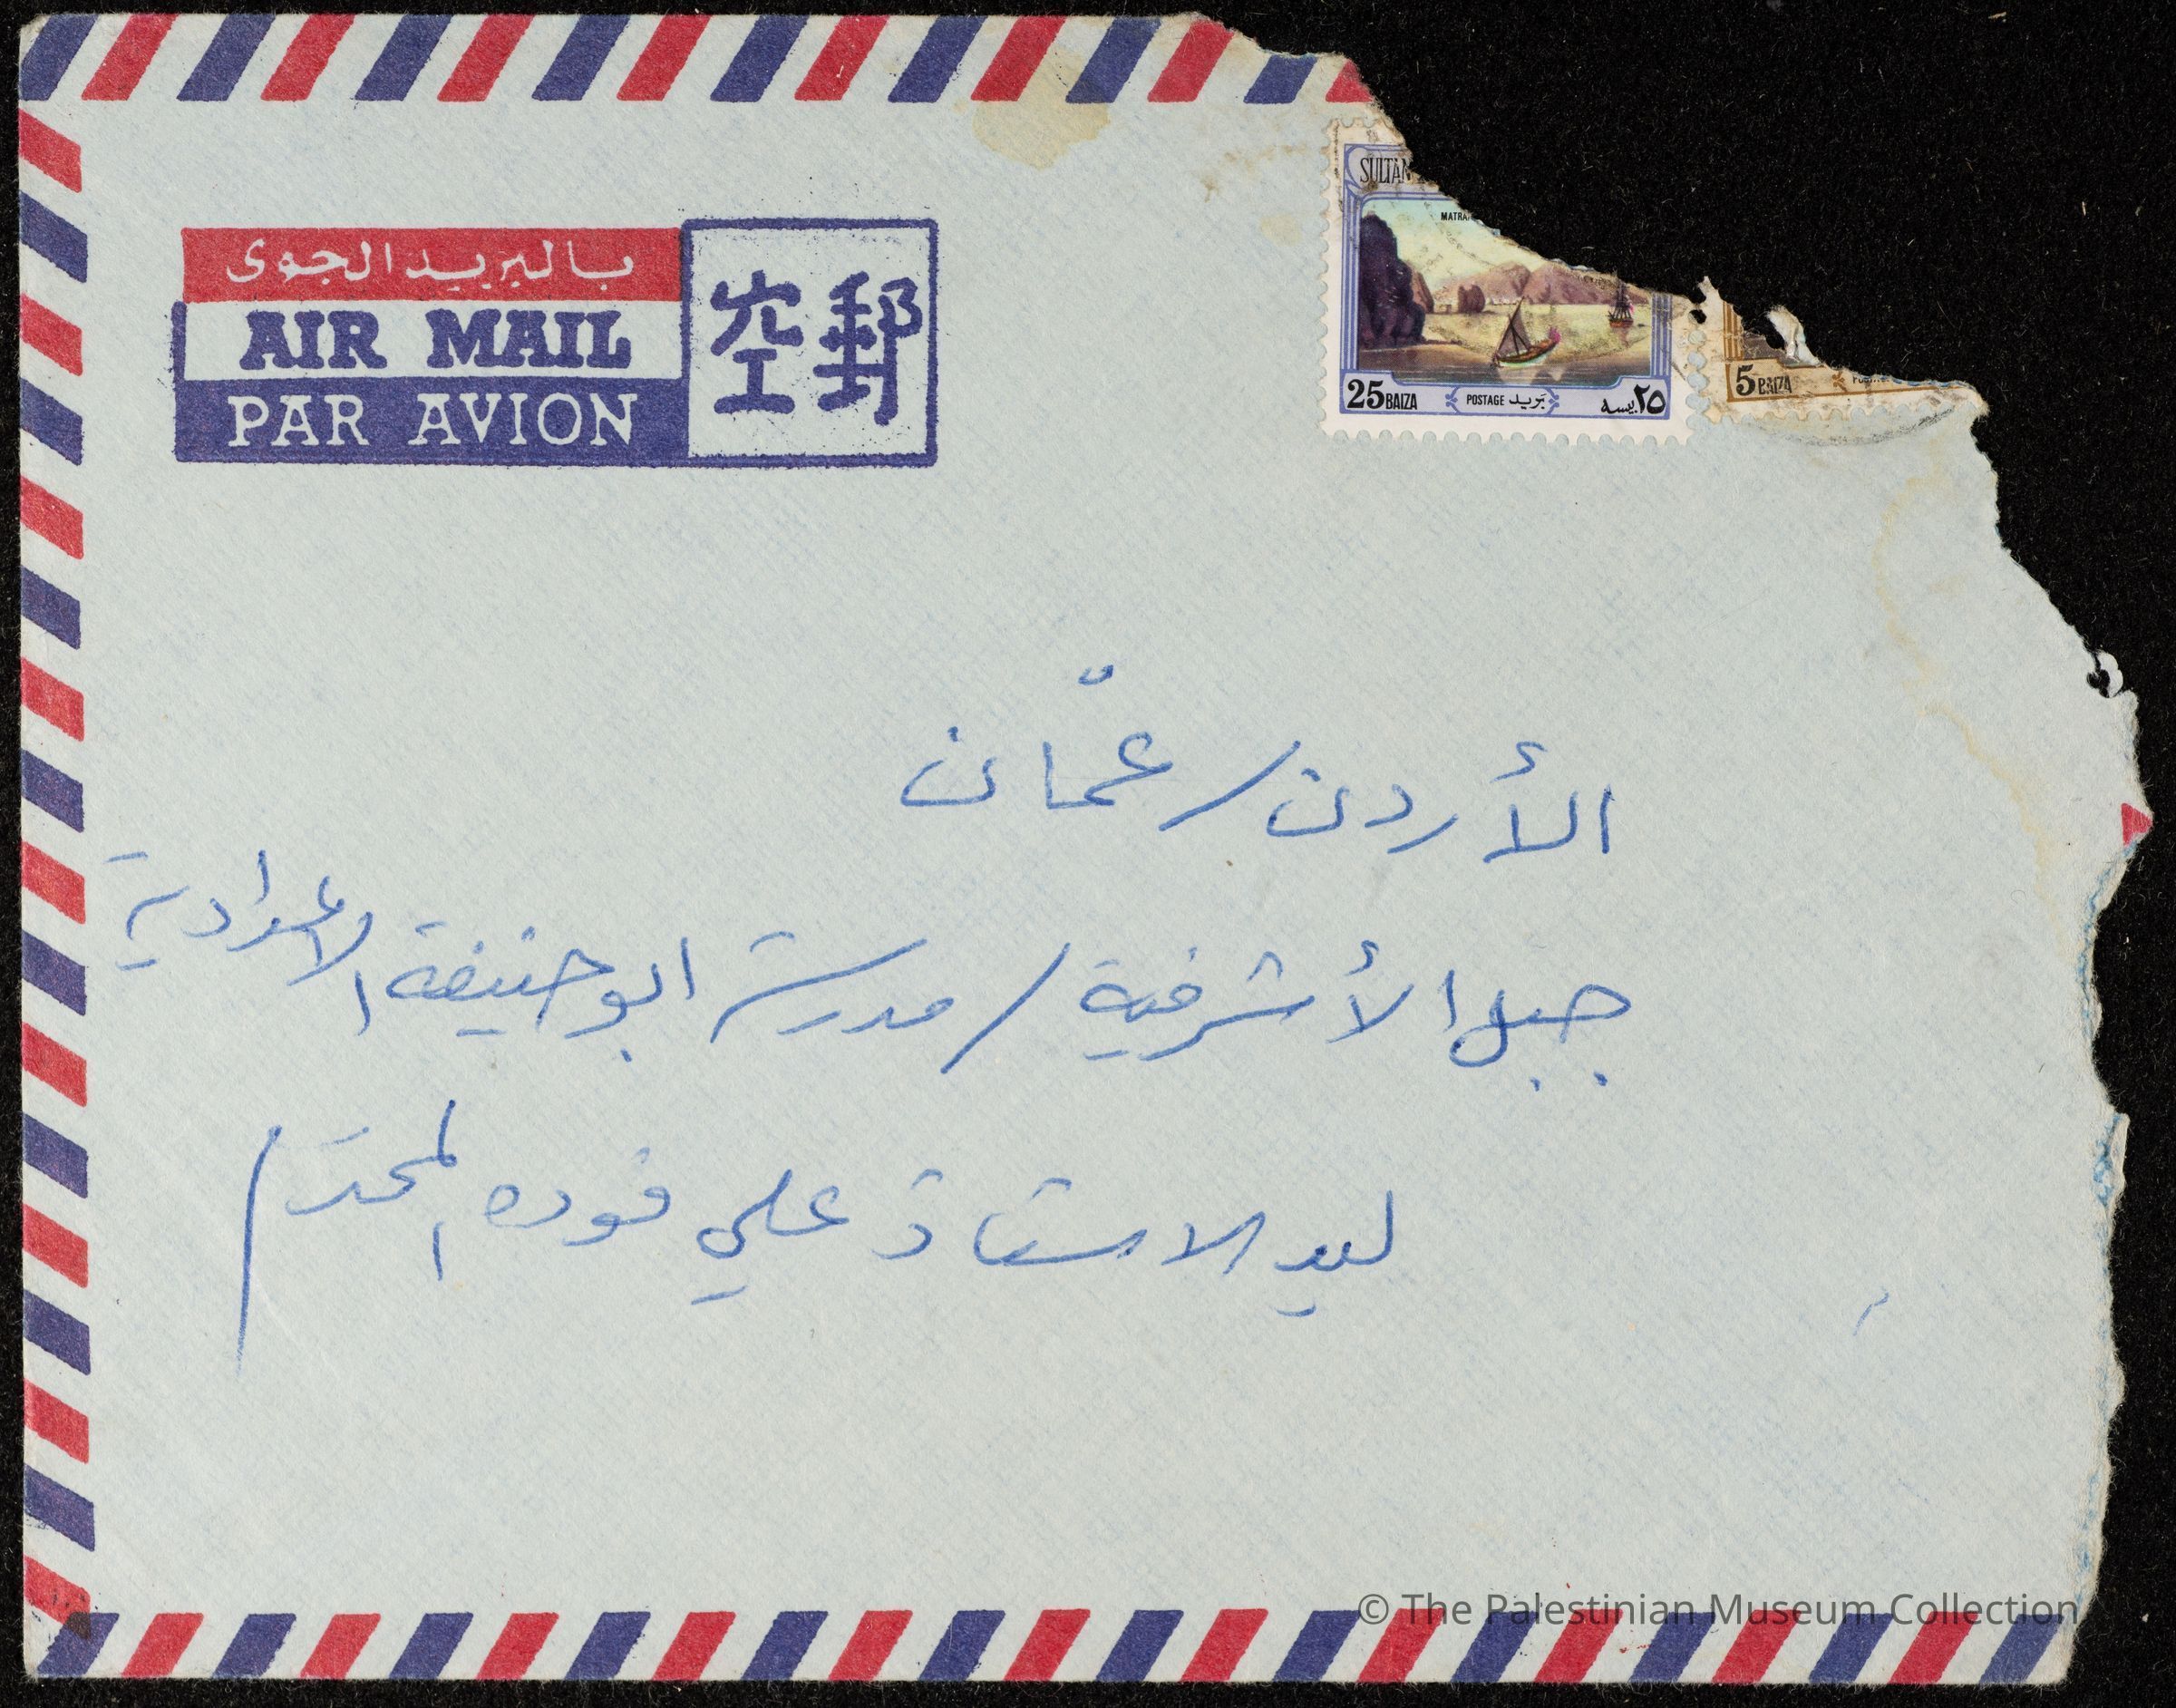 بالبريد الجوى
AIR MAIL
PAR AVION
空郵
SULTAN
MATRA
25 BAIZA POSTAGE بريد ٢٥ بيسه
5 BAIZA
الأردن / عمّان
جبل الأشرفية / مدرسة ابو حنيفة الاعدادية
ليد الاستاذ علي فوده المحترم
© The Palestinian Museum Collection